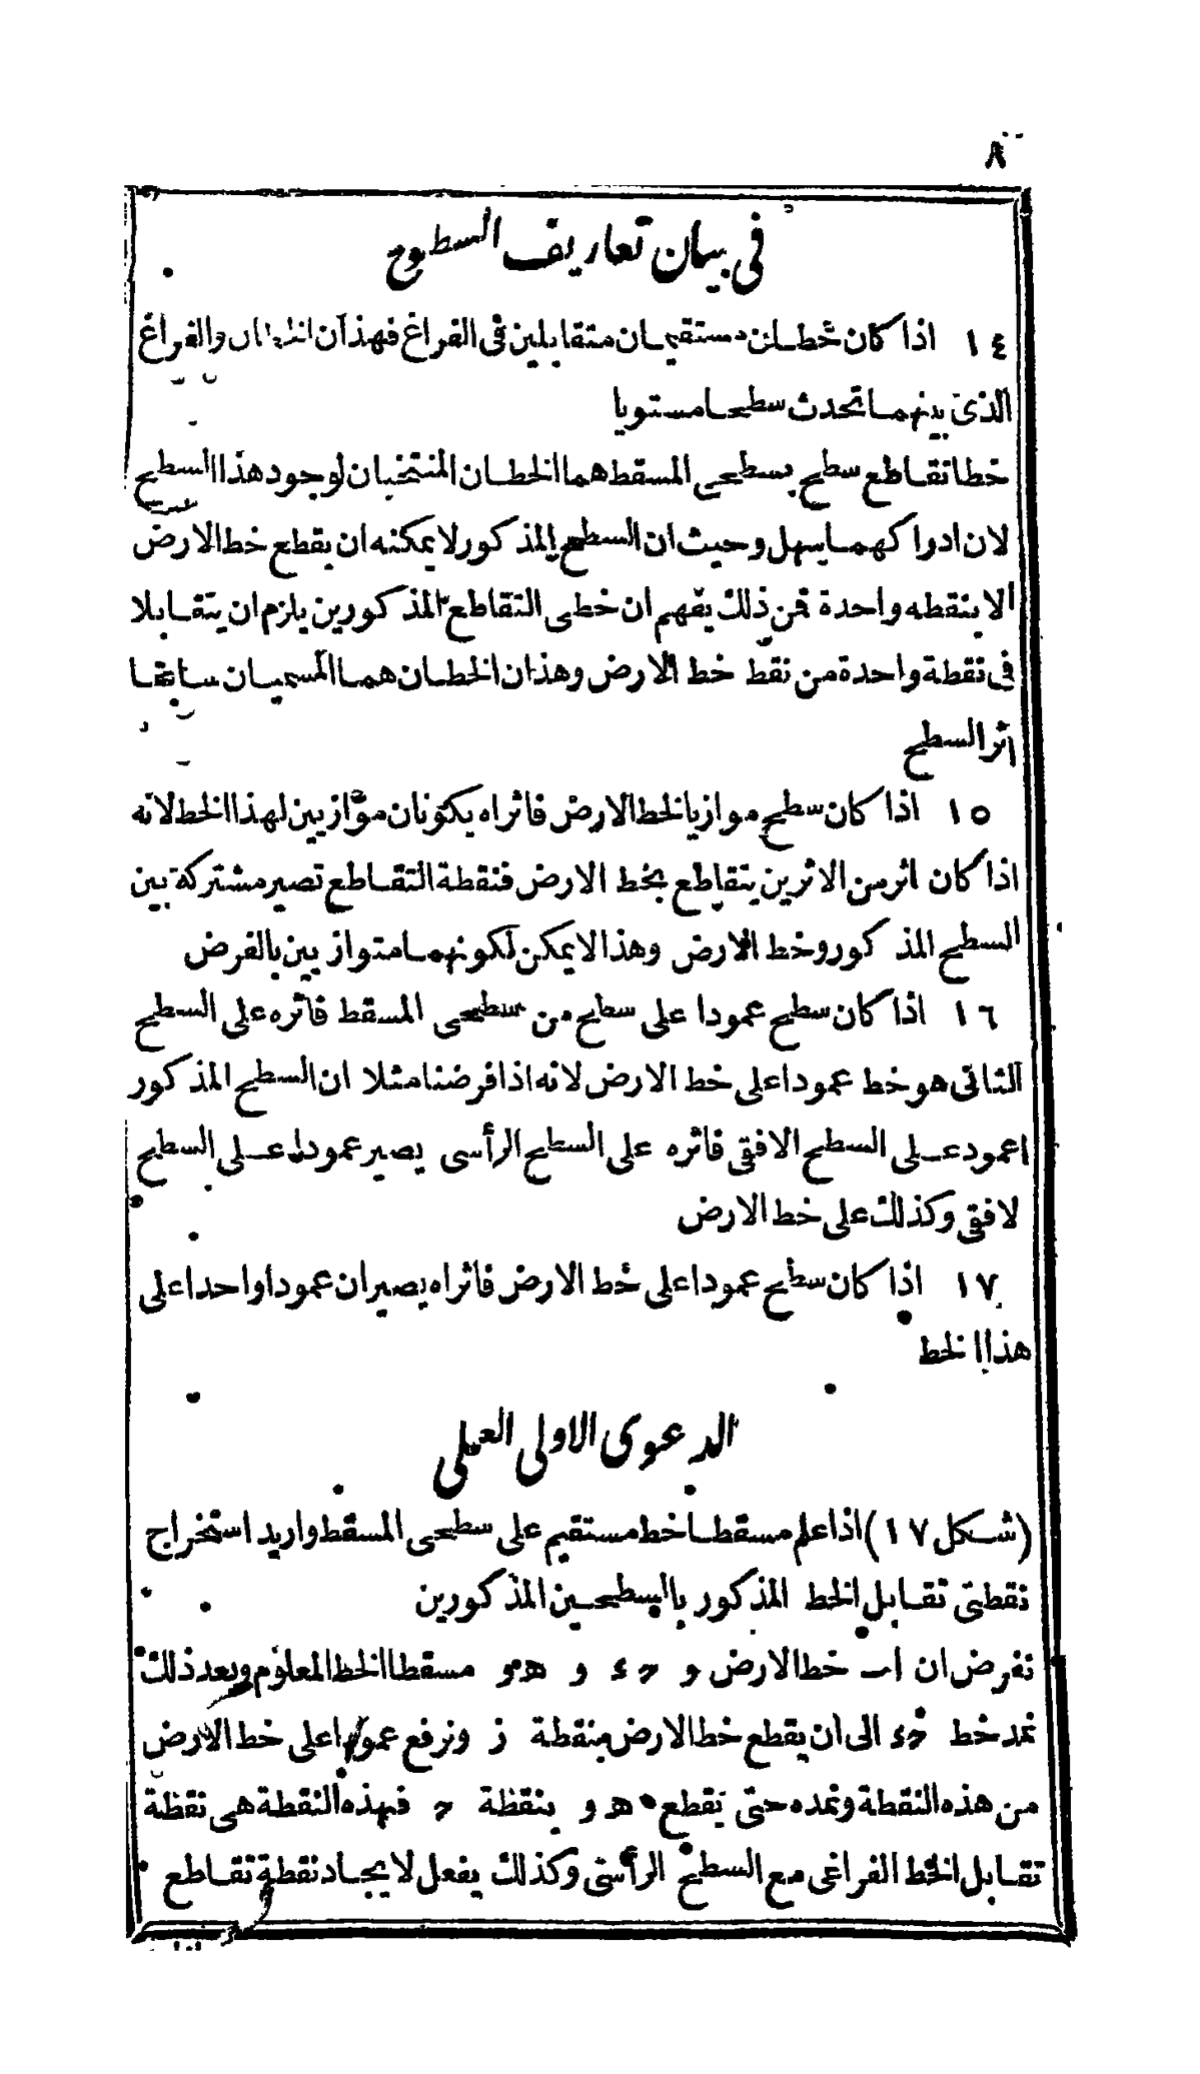 ٨
فى بيان تعاريف السطوح
١٤ اذا كان خطان مستقيمان متقابلين فى الفراغ فهذان الخطان والفراغ
الذى بينهما تحدث سطحا مستويا
خطا تقاطع سطح بسطحى المسقط هما الخطان المنتخبان لوجود هذا السطح
لان ادراكهما سهل وحيث ان السطح المذكور لا يمكنه ان يقطع خط الارض
الا بنقطه واحدة فمن ذلك يفهم ان خطى التقاطع المذكورين يلزم ان يتقابلا
فى نقطة واحدة من نقط خط الارض وهذان الخطان هما المسميان سابقا
اثر السطح
١٥ اذا كان سطح موازيا لخط الارض فاثراه يكونان موازيين لهذا الخط لانه
اذا كان اثر من الاثرين يتقاطع بخط الارض فنقطة التقاطع تصير مشتركة بين
السطح المذكور وخط الارض وهذا لا يمكن لكونهما متوازيين بالفرض
١٦ اذا كان سطح عمودا على سطح من سطحى المسقط فاثره على السطح
الثانى هو خط عمودا على خط الارض لانه اذا فرضنا مثلا ان السطح المذكور
اعمود على السطح الافقى فاثره على السطح الرأسى يصير عمودا على السطح
لافقى وكذلك على خط الارض
١٧ اذا كان سطح عمودا على خط الارض فاثراه يصيران عمودا واحدا على
هذا الخط
الدعوى الاولى العملى
(شكل ١٧) اذا علم مسقطا خط مستقيم على سطحى المسقط واريد استخراج
نقطتى تقابل الخط المذكور بالسطحين المذكورين
نفرض ان اب خط الارض و حء و هو مسقطا الخط المعلوم وبعد ذلك
نمد خط حء الى ان يقطع خط الارض بنقطة ز ونرفع عمودا على خط الارض
من هذه النقطة ونمده حتى يقطع هو بنقطة ح فهذه النقطة هى نقطة
تقابل الخط الفراغى مع السطح الرأسى وكذلك يفعل لايجاد نقطة تقاطع